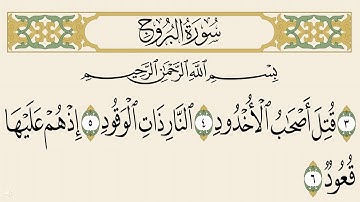 سُورَةُ البُرُوجِ
بِسْمِ اللَّهِ الرَّحْمَٰنِ الرَّحِيمِ
٣ قُتِلَ أَصْحَابُ الْأُخْدُودِ ٤ النَّارِ ذَاتِ الْوَقُودِ ٥ إِذْ هُمْ عَلَيْهَا
قُعُودٌ ٦